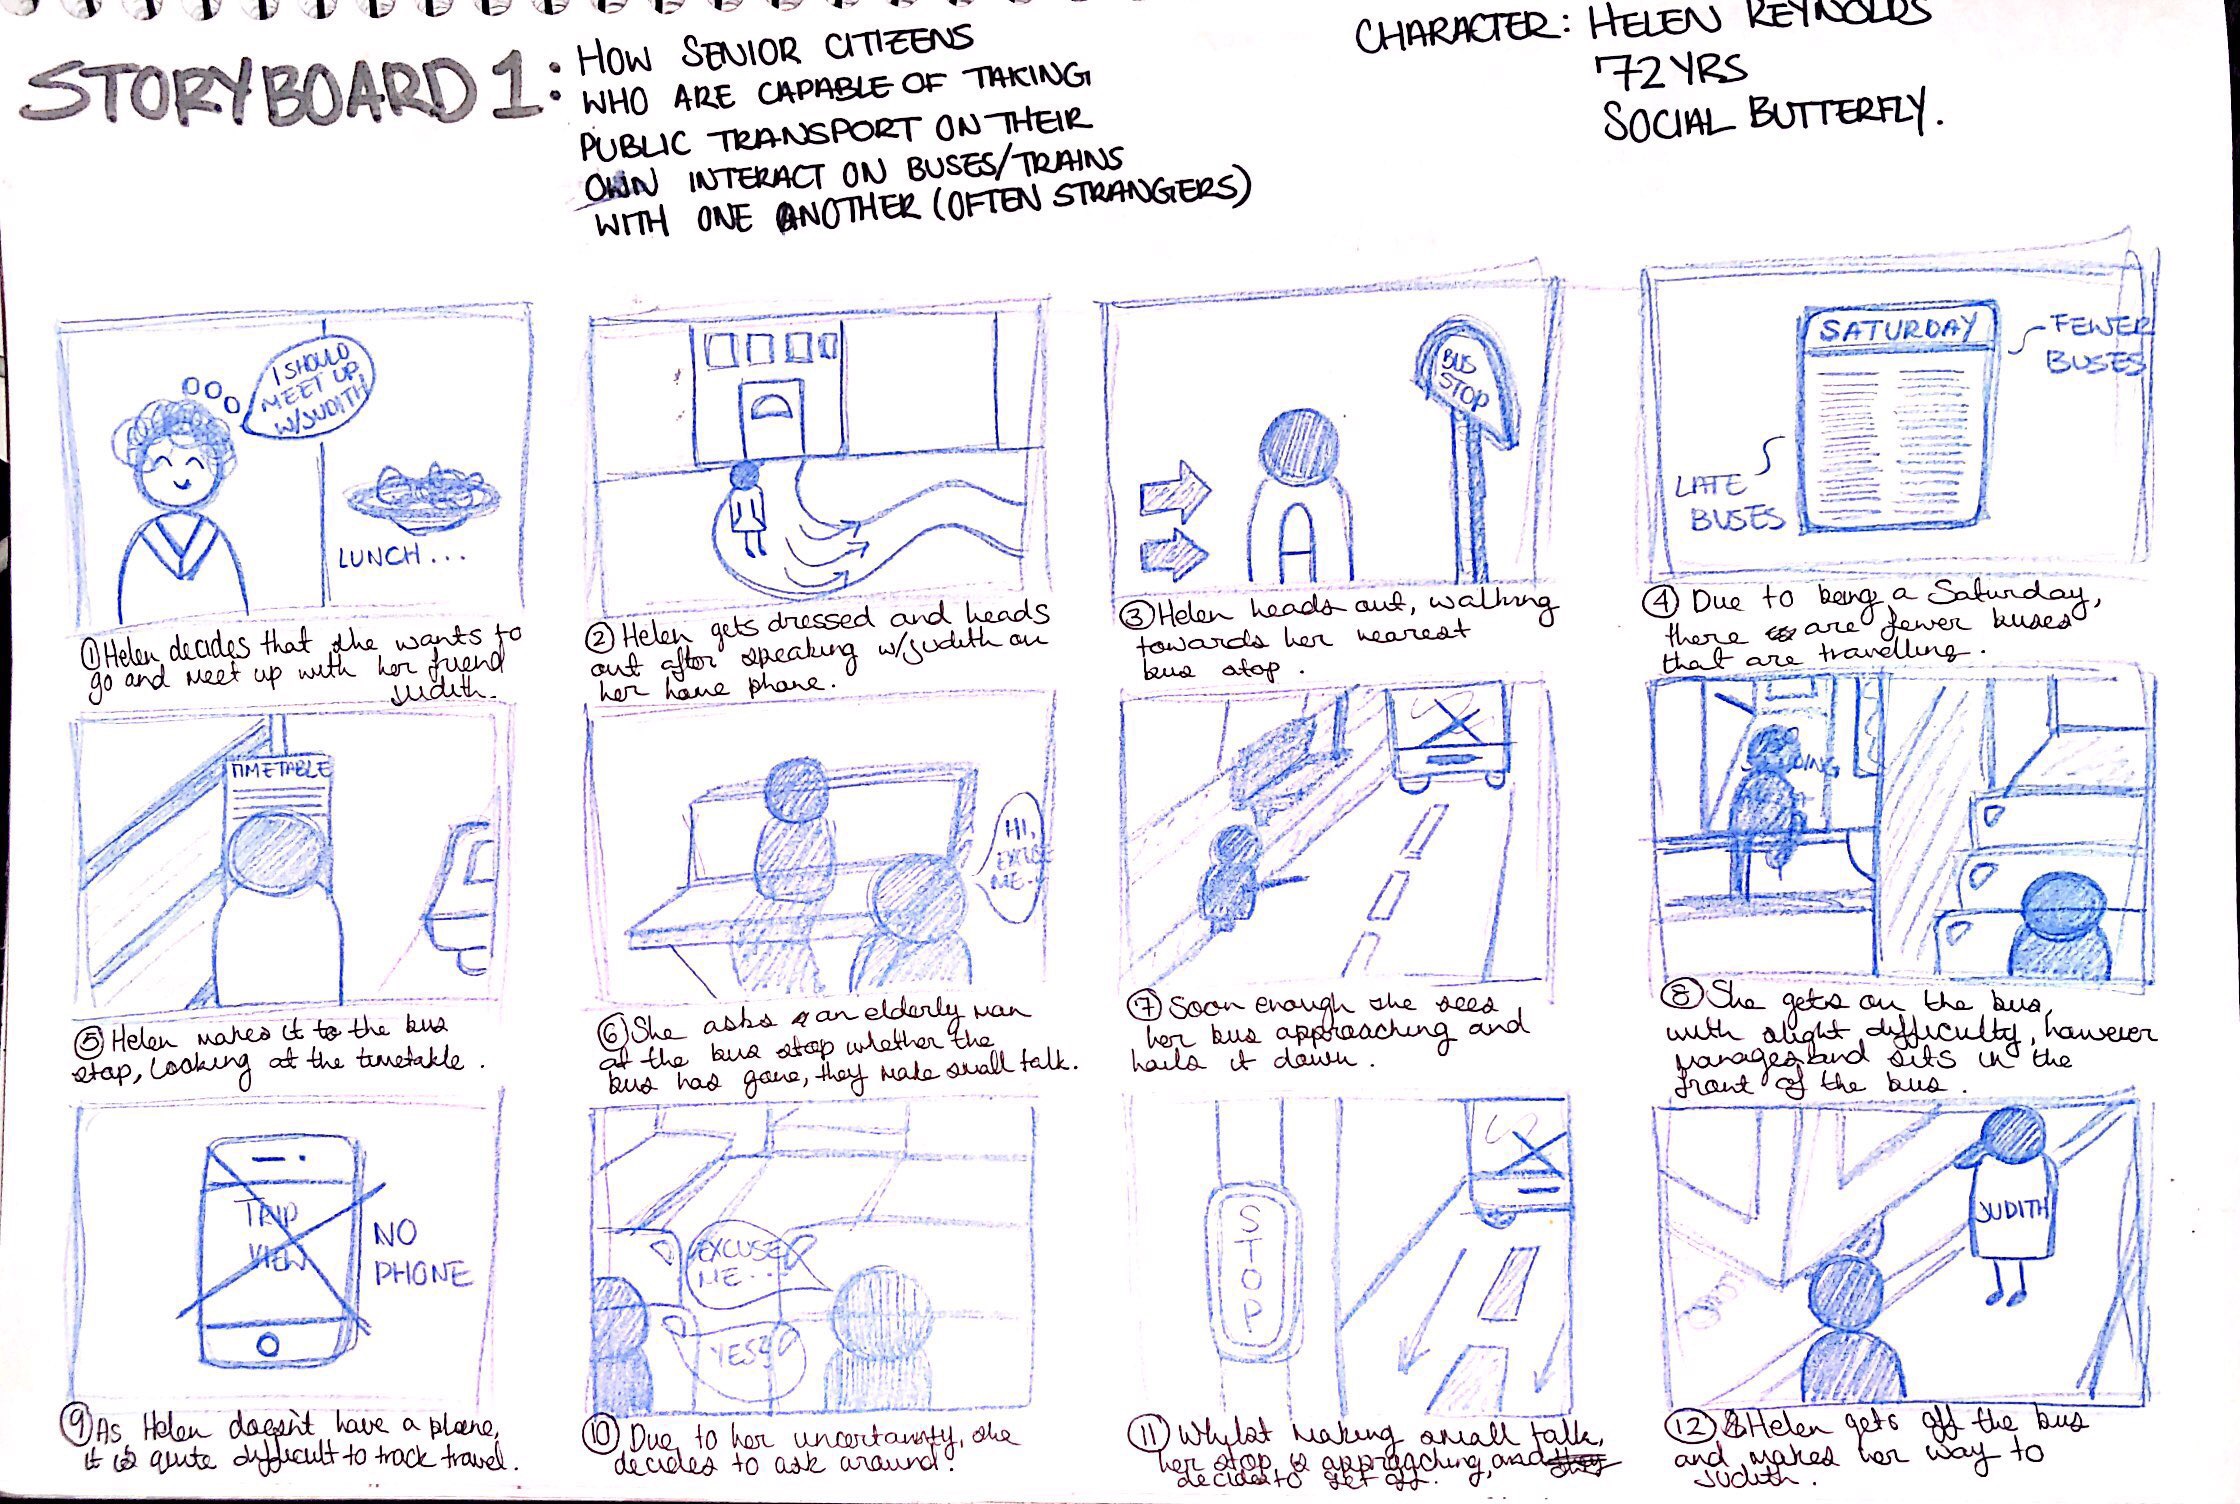 STORYBOARD 1:
HOW SENIOR CITIZENS
WHO ARE CAPABLE OF TAKING
PUBLIC TRANSPORT ON THEIR
OWN INTERACT ON BUSES/TRAINS
WITH ONE ANOTHER (OFTEN STRANGERS)
CHARACTER: HELEN REYNOLDS
72 YRS
SOCIAL BUTTERFLY.
I SHOULD
MEET UP
W/JUDITH
LUNCH...
① Helen decides that she wants to
go and meet up with her friend
Judith.
② Helen gets dressed and heads
out after speaking w/Judith on
her home phone.
BUS
STOP
③ Helen heads out, walking
towards her nearest
bus stop.
SATURDAY
FEWER
BUSES
LATE
BUSES
④ Due to being a Saturday,
there are fewer buses
that are travelling.
TIMETABLE
⑤ Helen makes it to the bus
stop, looking at the timetable.
HI,
EXCUSE
ME..
⑥ She asks an elderly man
at the bus stop whether the
bus has gone, they make small talk.
⑦ Soon enough she sees
her bus approaching and
hails it down.
⑧ She gets on the bus,
with slight difficulty, however
manages and sits in the
front of the bus.
TRIP
VIEW
NO
PHONE
⑨ As Helen doesn't have a phone,
it is quite difficult to track travel.
EXCUSE
ME...
YES?
⑩ Due to her uncertainty, she
decides to ask around.
STOP
⑪ Whilst making small talk,
her stop is approaching, and
decides to get off.
JUDITH
⑫ Helen gets off the bus
and makes her way to
Judith.